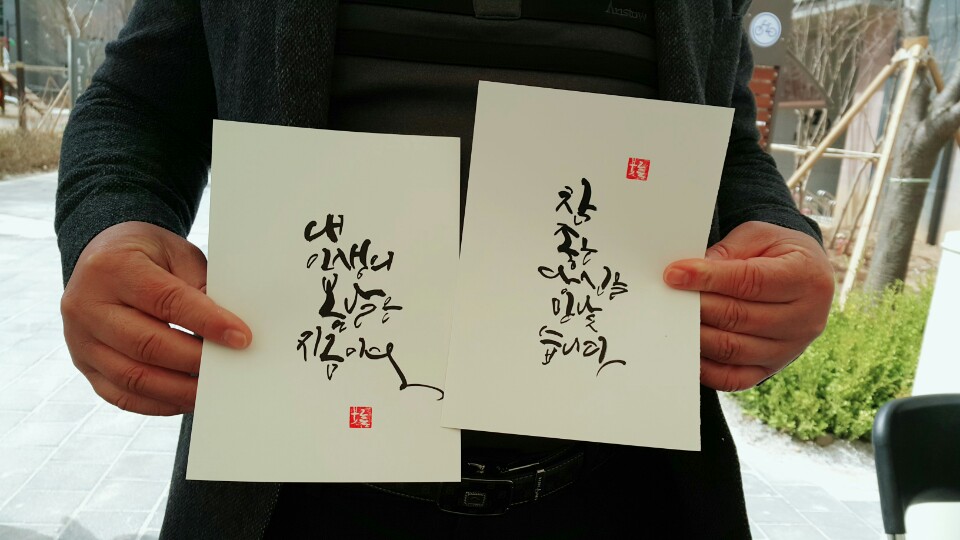 내
인생의
봄날은
지금이여
참
좋은
당신을
만났
습니다